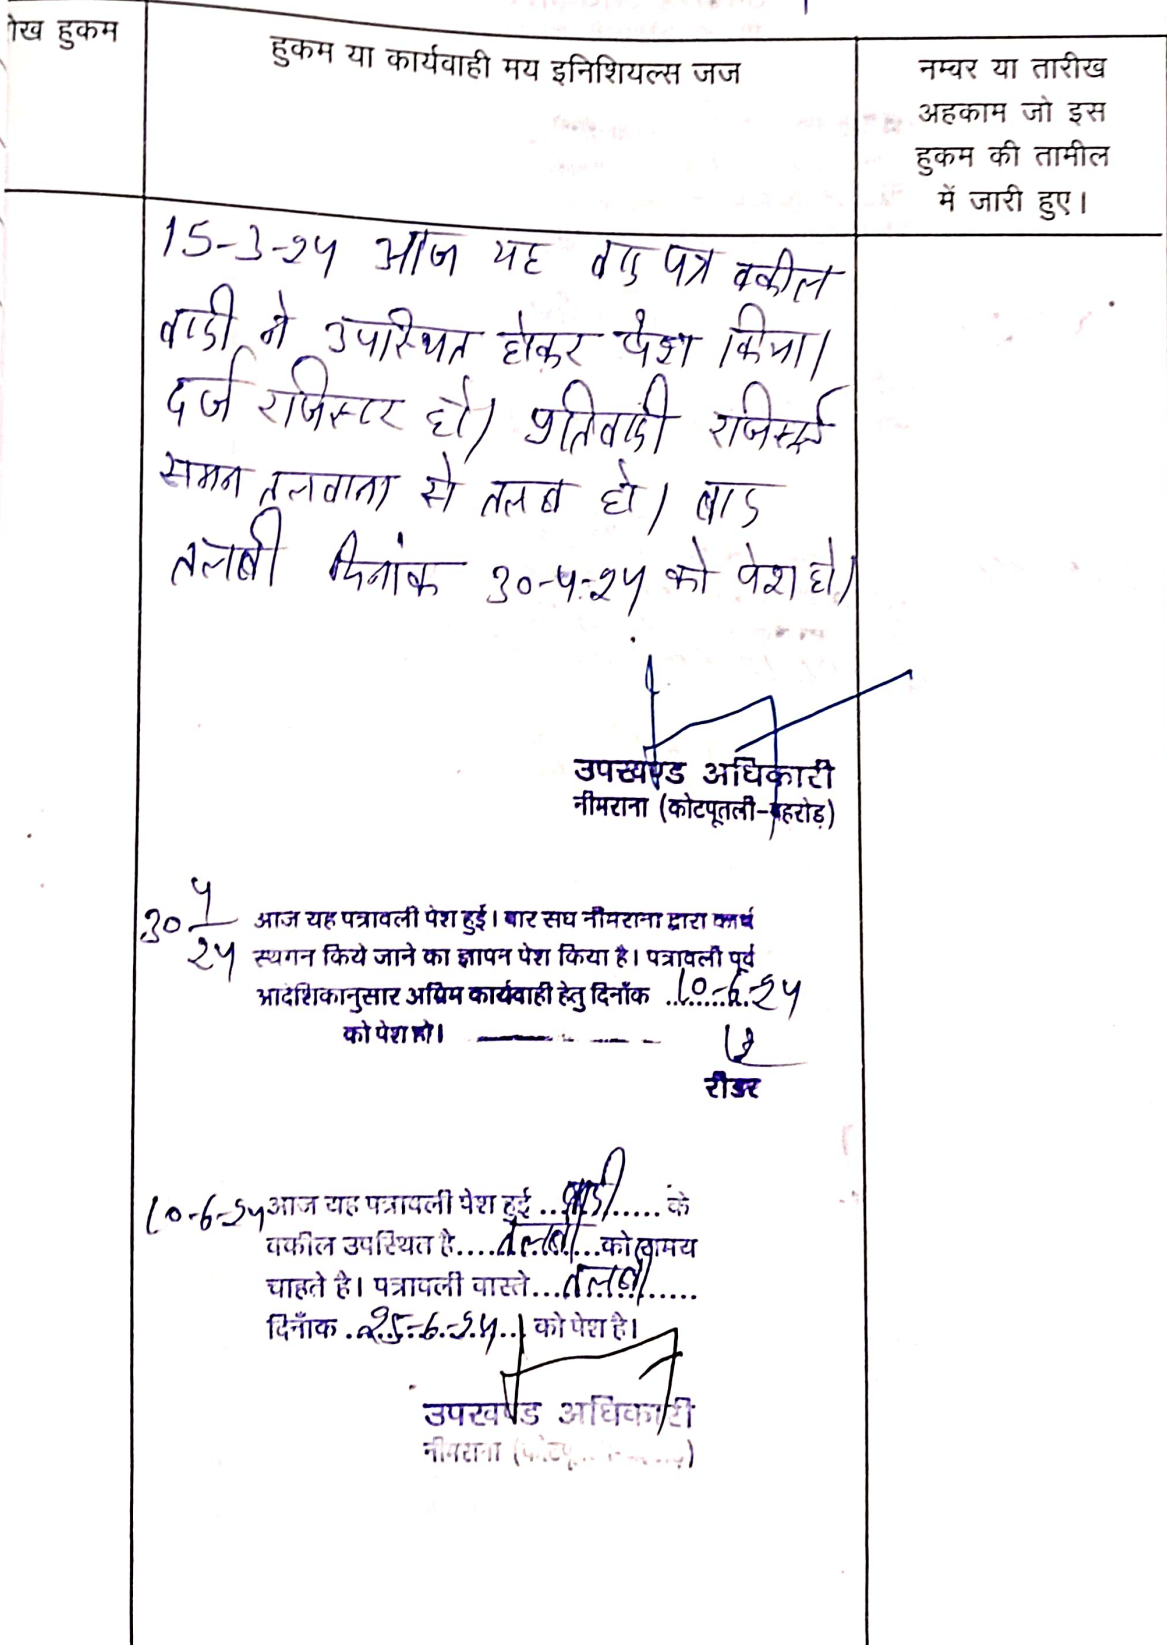 रीख हुकम
हुकम या कार्यवाही मय इनिशियल्स जज
नम्बर या तारीख
अहकाम जो इस
हुकम की तामील
में जारी हुए।
15-3-24 आज यह वाद पत्र वकील
वादी ने उपस्थित होकर पेश किया।
दर्ज रजिस्टर हो। प्रतिवादी रजिस्टर्ड
समन तलवाना से तलब हो। बाद
तलबी दिनांक 30-4-24 को पेश हो।
उपखण्ड अधिकारी
नीमराना (कोटपूतली-बहरोड़)
30 4/24 आज यह पत्रावली पेश हुई। बार संघ नीमराना द्वारा कार्य
स्थगन किये जाने का ज्ञापन पेश किया है। पत्रावली पूर्व
आदेशिकानुसार अग्रिम कार्यवाही हेतु दिनाँक 10-6-24
को पेश हो।
रीडर
10-6-24 आज यह पत्रावली पेश हुई ...वादी..... के
वकील उपस्थित है....तलबी...को समय
चाहते है। पत्रावली वास्ते...तलबी.....
दिनाँक .25-6-24.. को पेश है।
उपखण्ड अधिकारी
नीमराना